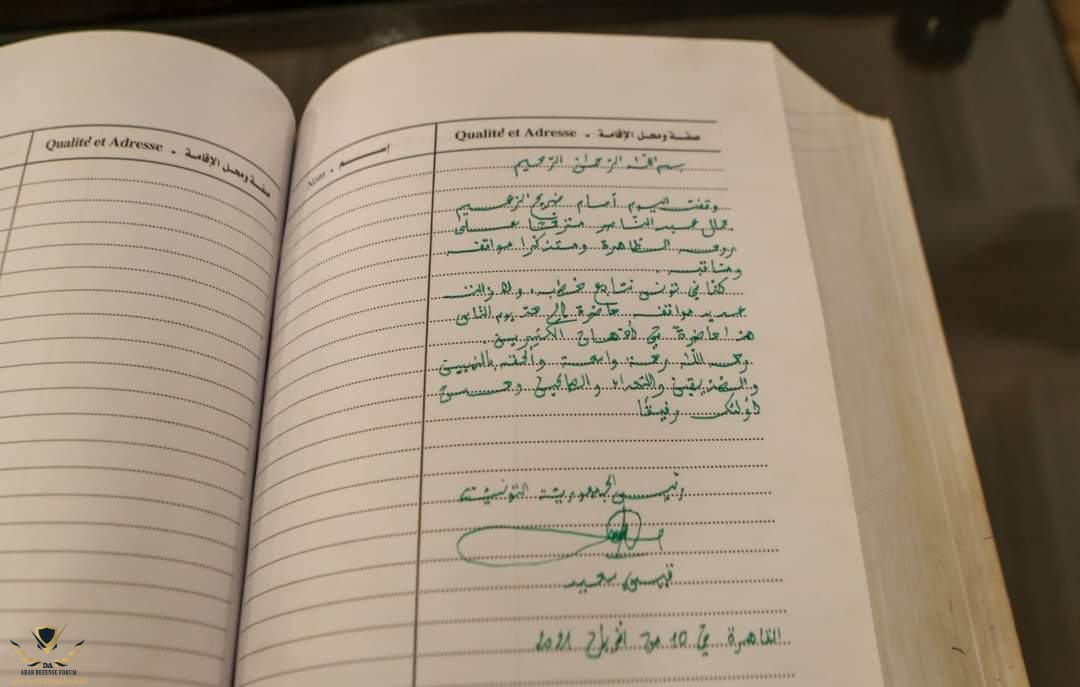 Qualité et Adresse • صفة ومحل الإقامة
Nom • إسم
Qualité et Adresse • صفة ومحل الإقامة
بسم الله الرحمان الرحيم
وقفت اليوم أمام ضريح الزعيم
جمال عبد الناصر مترحّما على
روحه الطاهرة ومتذكرا مواقفه
ومناقبه.
كنا في تونس نتابع خطبه ولا زالت
عديد مواقفه حاضرة إلى حدّ يوم الناس
هذا حاضرة في أذهان الكثيرين.
رحمه اللّه رحمة واسعة وألحقه بالنبيين
والصديقين والشهداء والصالحين وحسن
أولئك رفيقًا
رئيس الجمهورية التونسية
قيس سعيد
القاهرة في 10 من أفريل 2021
DA
ARAB DEFENSE FORUM